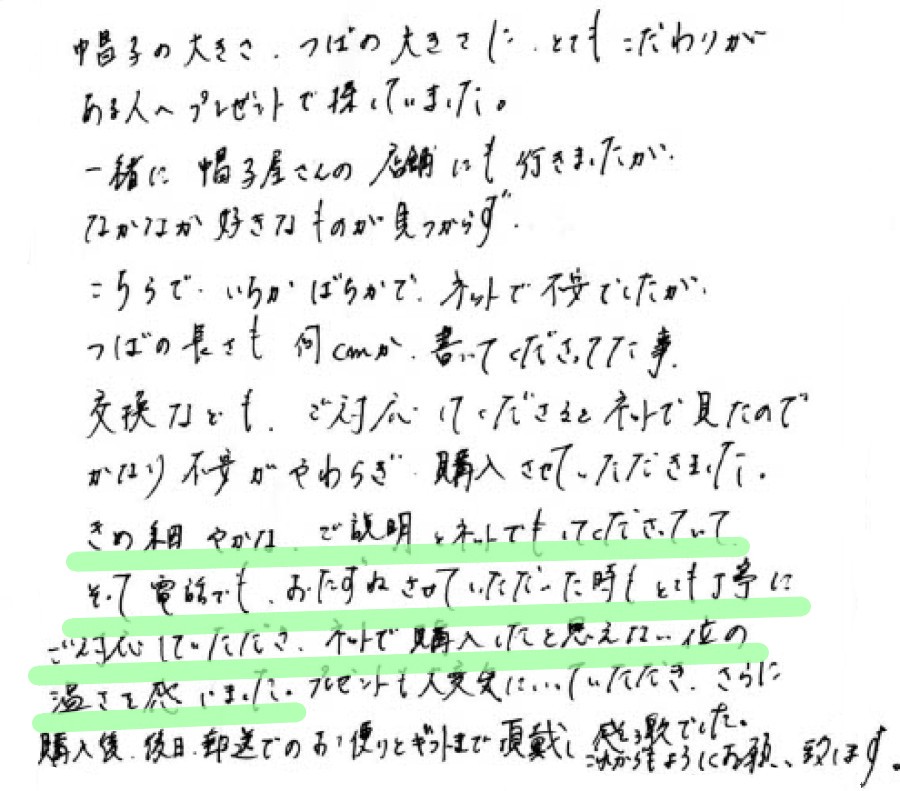 帽子の大きさ、つばの大きさに、とてもこだわりが
ある人へプレゼントで探していました。
一緒に帽子屋さんの店舗にも行きましたが、
なかなか好きなものが見つからず、
こちらで、いちかばちかで、ネットで不安でしたが、
つばの長さも何cmか、書いてくださってた事、
交換なども、ご対応してくださるとネットで見たので
かなり不安がやわらぎ、購入させていただきました。
きめ細やかな、ご説明をネットでもしてくださっていて、
そして電話でも、おたずねさせていただいた時もとても丁寧に
ご対応していただき、ネットで購入したと思えない位の
温さを感じました。プレゼントも大変気にいっていただき、さらに
購入後、後日、郵送でのお便りとギフトまで頂戴し、感激でした。
これからもよろしくお願い致します。